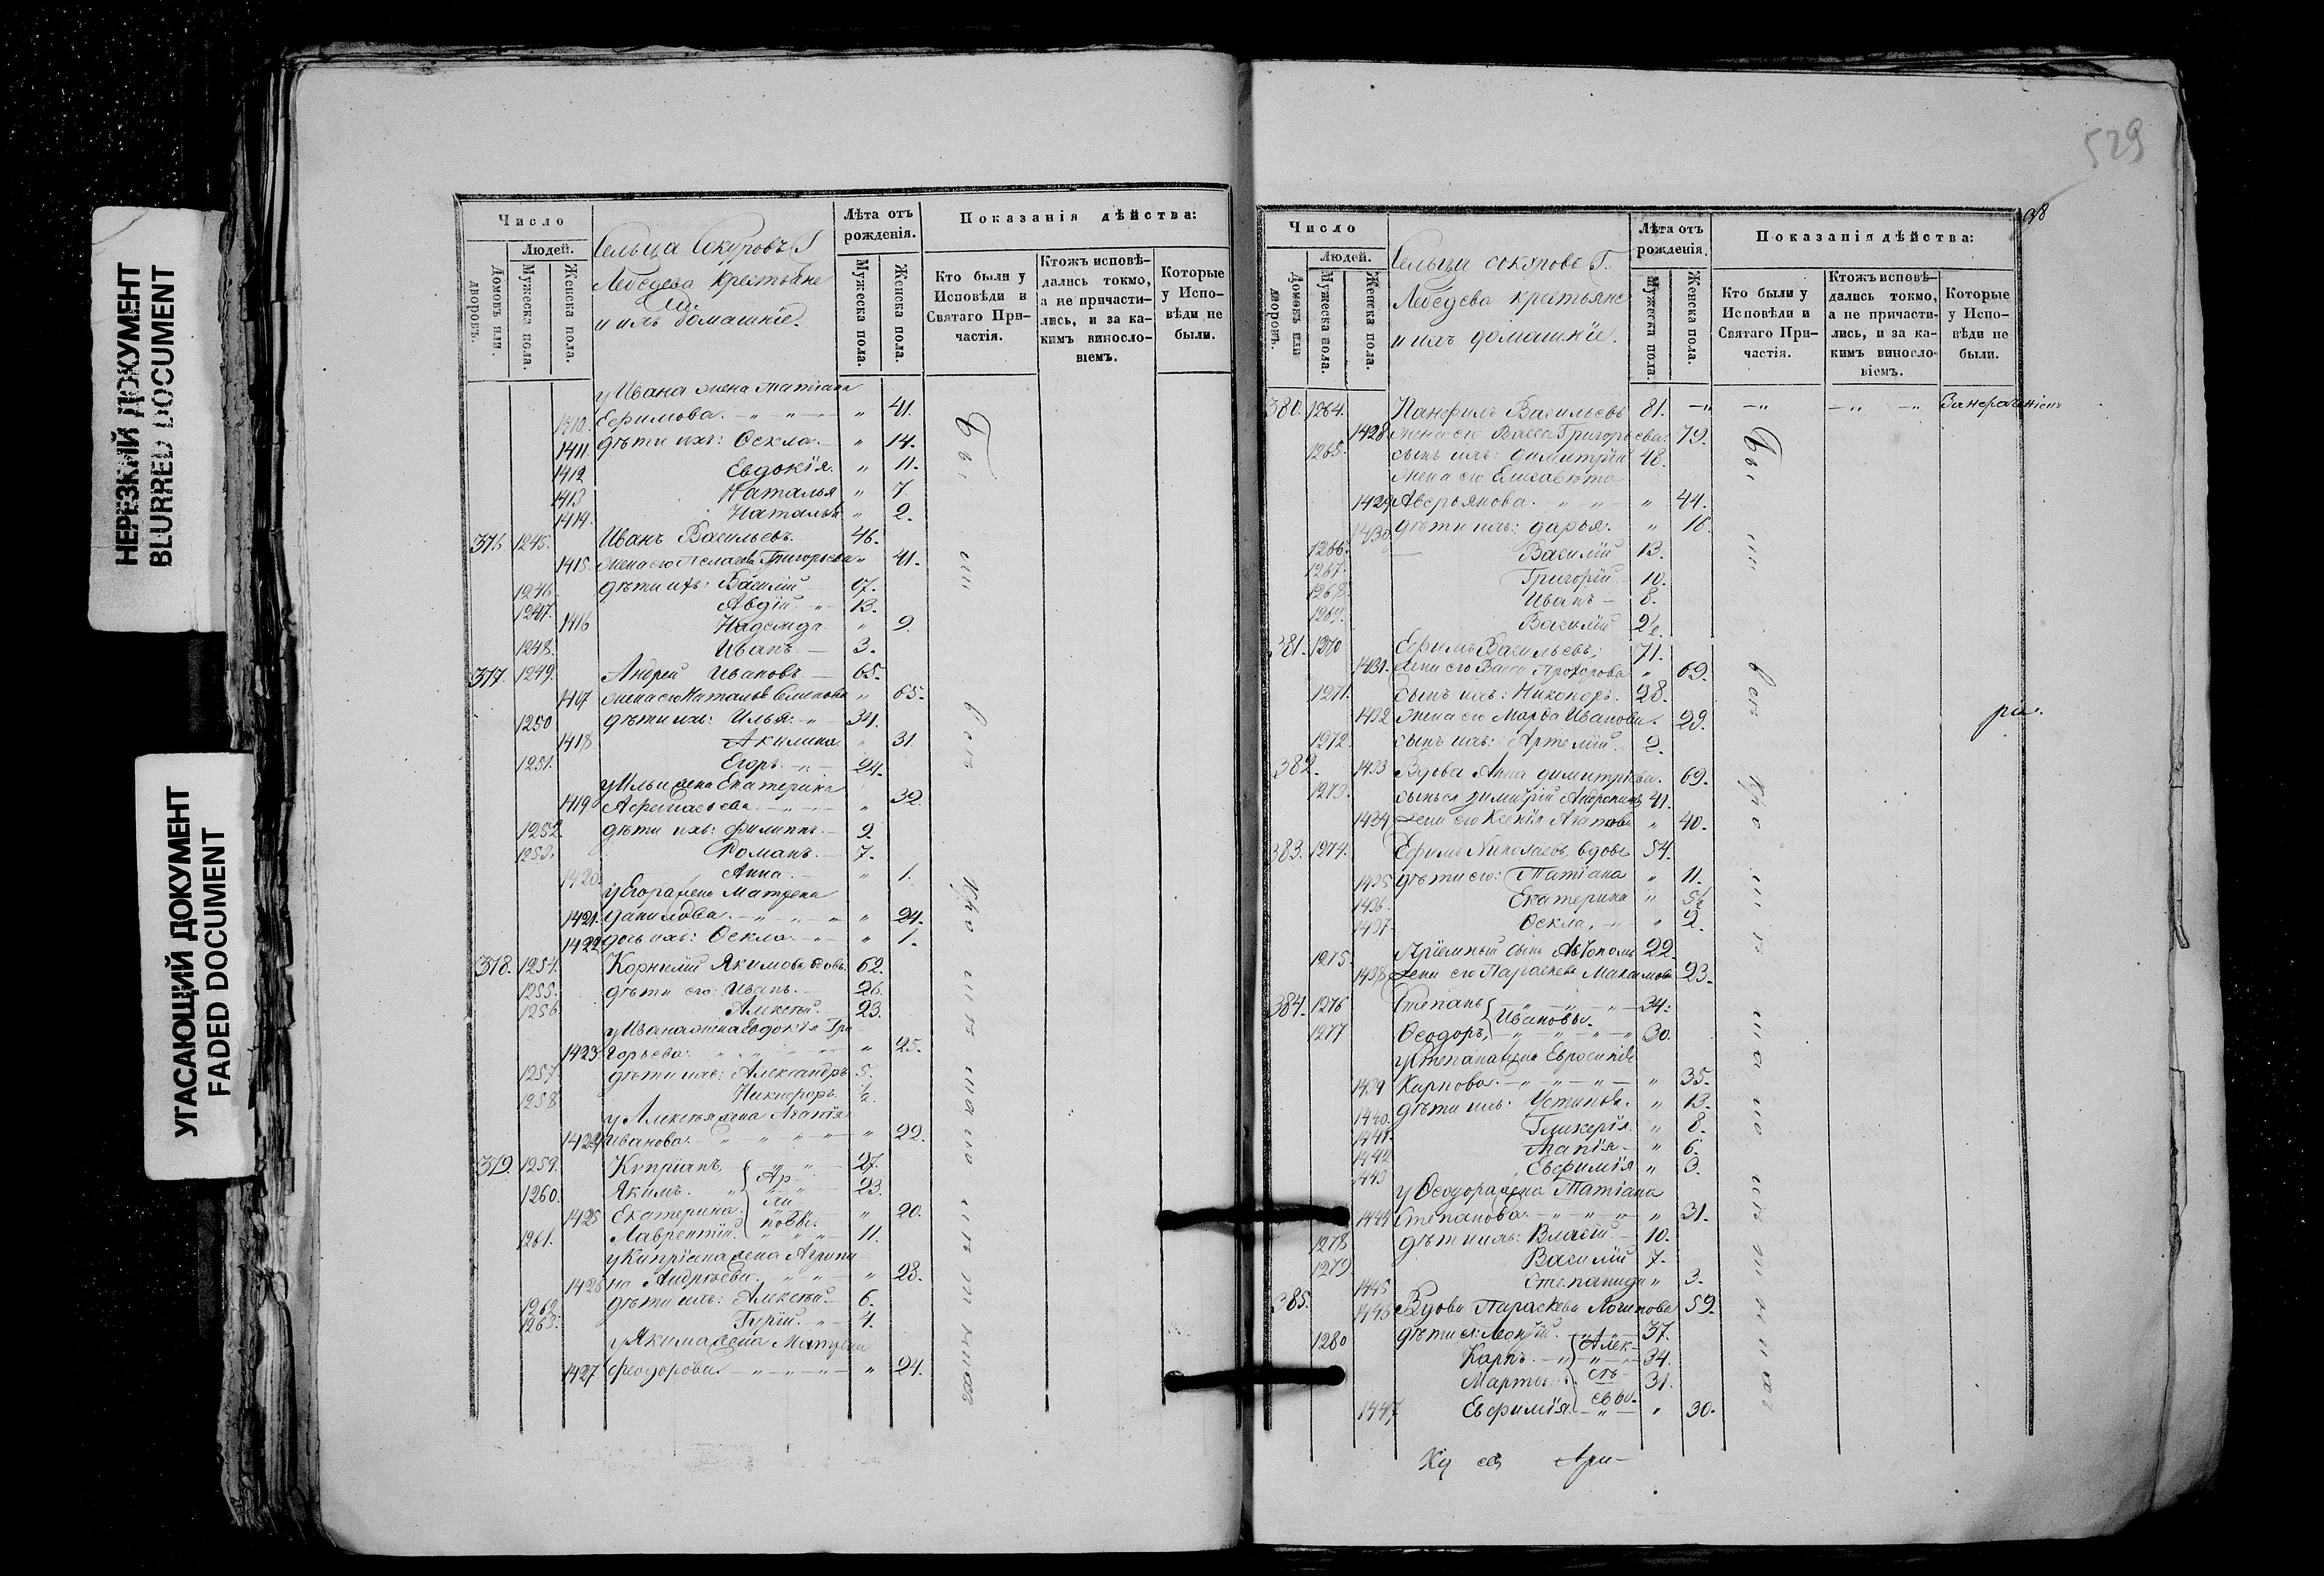 НЕРЕЗКИЙ ДОКУМЕНТ
BLURRED DOCUMENT
УГАСАЮЩИЙ ДОКУМЕНТ
FADED DOCUMENT
Число
Людей.
Домовъ или дворовъ.
Мужеска пола.
Женска пола.
Сельца Сокуровъ Г.
Лебедева крестьяне
и ихъ домашніе.
Лѣта отъ рожденія.
Мужеска пола.
Женска пола.
Показанія дѣйства:
Кто были у Исповѣди и Святаго Причастія.
Ктожъ исповѣдались токмо, а не причастились, и за какимъ винословіемъ.
Которые у Исповѣди не были.
у Ивана жена Татіана
1410. Ефимова " 41.
1411 дѣти ихъ: Ѳекла. " 14.
1412 Евдокія. " 11.
1413 Наталья " 7.
1414. Наталья " 2.
376. 1245. Иванъ Васильевъ 46.
1415. жена его Пелагея Григорьева " 41.
1246. дѣти ихъ: Василій 17.
1247. Авдій 13.
1416 Надежда " 9.
1248. Иванъ 3.
377. 1249. Андрей Ивановъ 65.
1417 жена его Наталья Семенова " 65.
1250 дѣти ихъ: Илья 34.
1418. Акилина " 31.
1251. Егоръ 24.
у Ильи жена Екатерина
1419 Афанасьева " 32.
1252. дѣти ихъ: Филиппъ 9.
1253. Романъ 7.
1420. Анна " 1.
у Егора жена Матрена
1421. Данилова " 24.
1422 дочь ихъ: Ѳекла " 1.
378. 1254. Корнилій Якимовъ вдовъ. 62.
1255. дѣти его: Иванъ 26.
1256. Алексѣй 23.
у Ивана жена Евдокія Гри
1423. горьева " 25.
1257. дѣти ихъ: Александръ 5.
1258. Никифоръ ½.
у Алексѣя жена Агапія
1424 Иванова " 22.
379. 1259. Кипріанъ 27.
1260. Якимъ 23.
1425 Екатерина " 20.
1261. Лаврентій 11.
у Кипріана жена Агрипи-
1426 на Андрѣева " 28.
1262. дѣти ихъ: Алексѣй 6.
1263. Гурій 4.
у Якима жена Матрена
1427 Феодорова " 24.
529
Число
Людей.
Домовъ или дворовъ.
Мужеска пола.
Женска пола.
Сельца Сокуровъ Г.
Лебедева крестьяне
и ихъ домашніе.
Лѣта отъ рожденія.
Мужеска пола.
Женска пола.
Показанія дѣйства:
Кто были у Исповѣди и Святаго Причастія.
Ктожъ исповѣдались токмо, а не причастились, и за какимъ винословіемъ.
Которые у Исповѣди не были.
380. 1264. Панфилъ Васильевъ 81. За нераченіемъ
1428 жена его Васса Григорьева. 79.
1265. сынъ ихъ: Димитрій 48.
жена его Елисавета
1429 Аверьянова " 44.
1430 дѣти ихъ: Дарья. " 16.
1266. Василій 13.
1267. Григорій 10.
1268. Иванъ 8.
1269. Василій 2½.
381. 1270 Ефимъ Васильевъ 71.
1431. жена его Васса Прохорова " 69.
1271. сынъ ихъ: Никоноръ 28.
1432 жена его Марфа Иванова. 29.
1272. сынъ ихъ: Артемій 2.
382. 1433 Вдова Анна Димитріева. 69.
1273. сынъ ея Димитрій 41.
1434 жена его Ксенія " 40.
383. 1274. Ефимъ Николаевъ вдовъ 54.
1435 дѣти его: Татіана " 11.
1436. Екатерина " 5½
1437 Ѳекла " 2.
1275. Пріемный сынъ Автономъ 22.
1438 жена его Параскева Максимова 23.
384. 1276 Степанъ 34.
Ивановы.
1277 Ѳеодоръ 30.
у Степана жена Евросинія
1439 Карпова " 35.
1440. дѣти ихъ: Устинья. " 13.
1441. Гликерія. " 8.
1442 " 6.
1443 Евфимія " 3.
у Ѳеодора жена Татіана
1444 Степанова " 31.
1278 дѣти ихъ: Власій 10.
1279 Василій 7.
1445 Степанида " 3.
385. 1446 Вдова Параскева Логинова 59.
1280 дѣти ея: 37.
Карпъ 34.
31.
1447 Евфимія " 30.